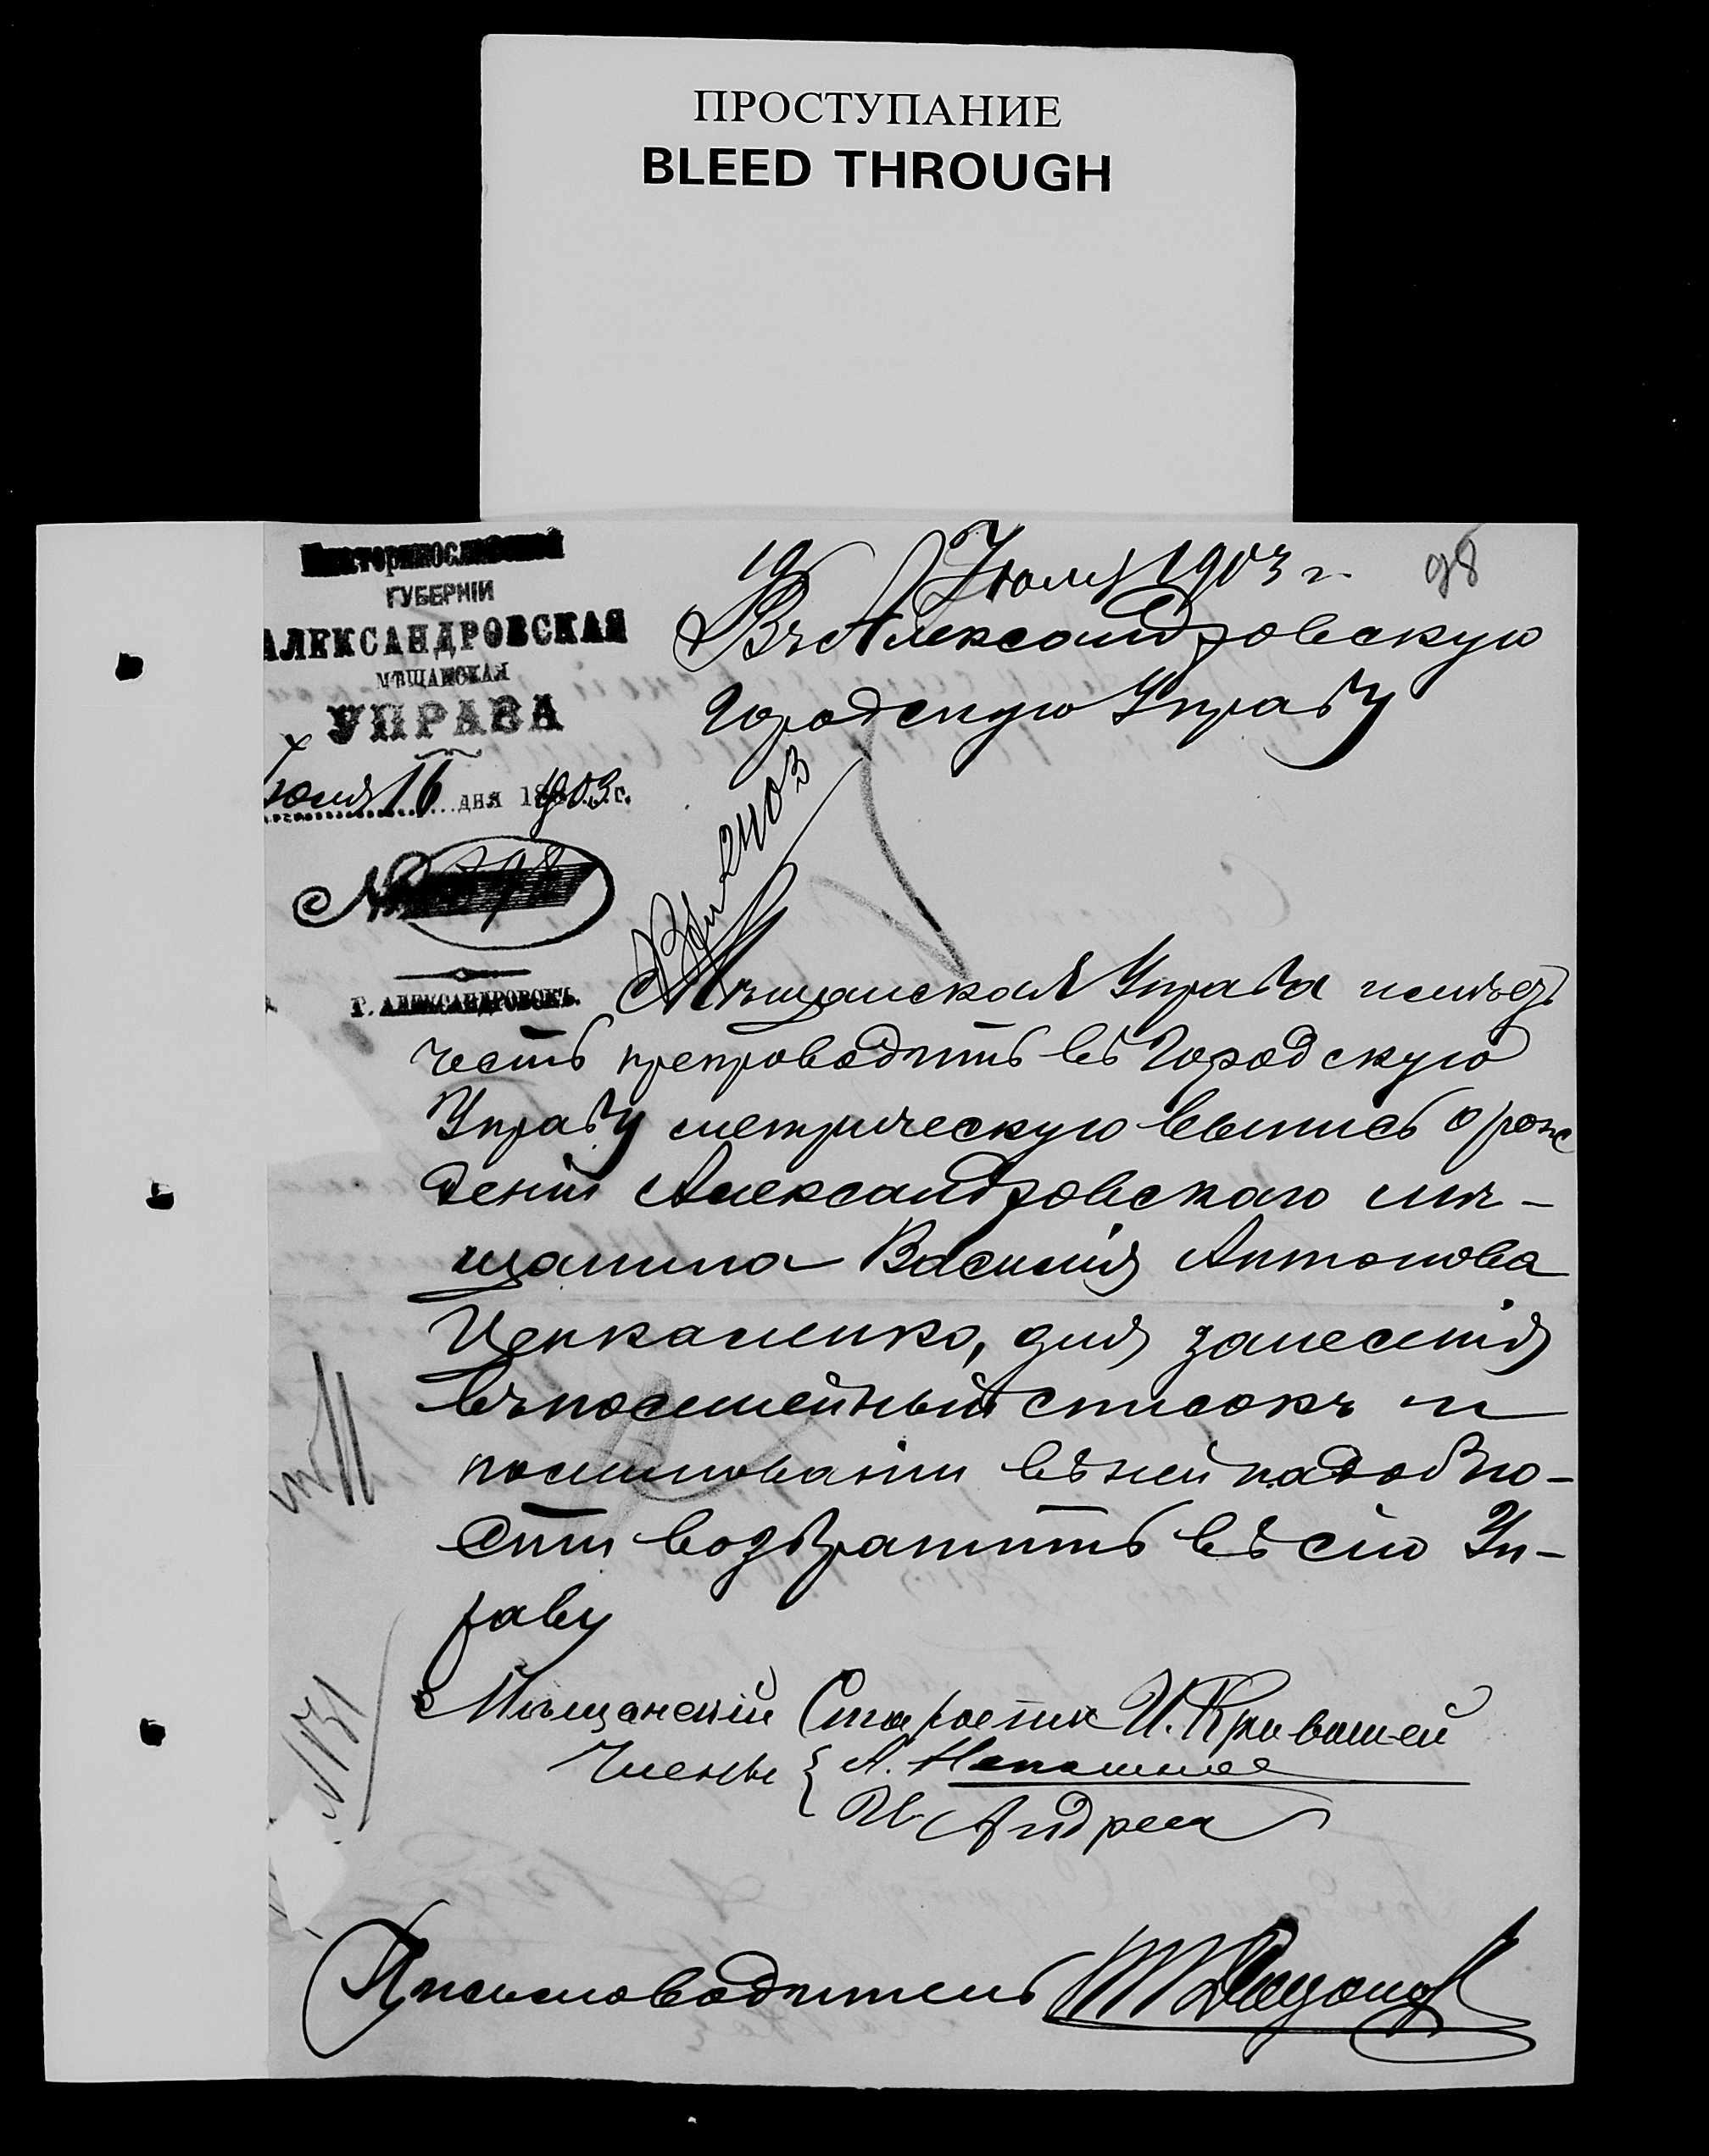 ПРОСТУПАНИЕ
BLEED THROUGH
19 Іюля 1903 г.
98
Екатеринославской
ГУБЕРНІИ
АЛЕКСАНДРОВСКАЯ
МѢЩАНСКАЯ
УПРАВА
Іюля 16 дня 1903 г.
№
Г. АЛЕКСАНДРОВСКЪ.
Въ Александровскую
Городскую Управу
Мѣщанская Управа имѣетъ
честь препроводить въ Городскую
Управу метрическую выпись о рож
деніи Александровскаго мѣ-
щанина Василія Антонова
Цепкаленко, для занесенія
въ посемейный списокъ и
по минованіи въ ней надобно-
сти возвратить въ сію Уп-
раву
Мѣщанскій Староста И. Кривошей
Члены { А.
И. Андреев
Письмоводитель